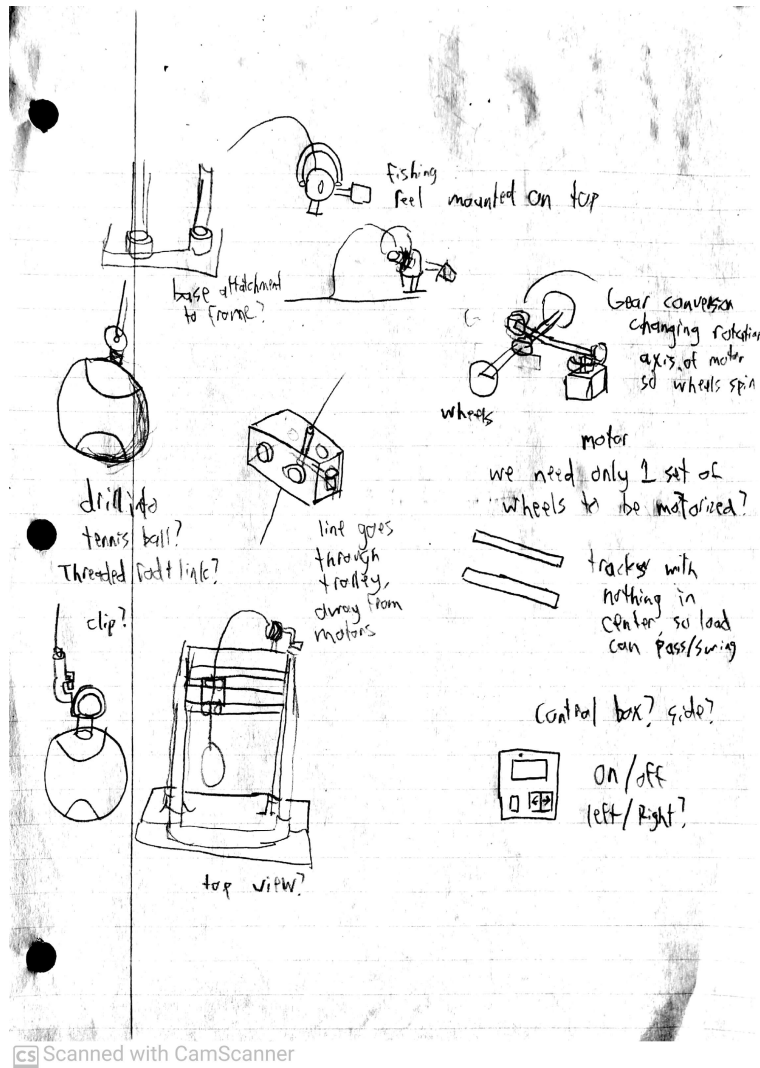 fishing
reel mounted on top
base attatchment
to frame?
Gear conversion
changing rotation
axis of motor
so wheels spin
wheels
motor
we need only 1 set of
wheels to be motorized?
drill into
tennis ball?
Threaded rod + link?
line goes
through
trolley,
away from
motors
tracks with
nothing in
center, so load
can pass/swing
clip?
Control box? side?
on/off
left/Right?
top view?
CS Scanned with CamScanner